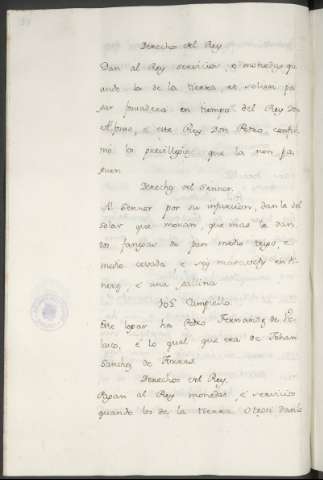 Derechos del Rey
Dan al Rey servicios, e monedas qu
ando los de la tierra, et solien pa
gar fonsadera en tiempo del Rey Don
Alfonso, e este Rey Don Pedro, confir
mo los previllejios que la non pa
guen
Derechos del Sennor
Al Sennor por su infurcion, danle del
solar que moran, que mas le dan
dos fanegas de pan medio trigo, e
medio cevada e seys maravedis en di
neros, e una gallina
Campiello
Este logar ha Pedro Fernandez de Ve
lasco, e lo qual que era de Johan
Sanchez de
Derechos del Rey
Pagan al Rey monedas, e servicios
quando los de la tierra. Otrosi danle